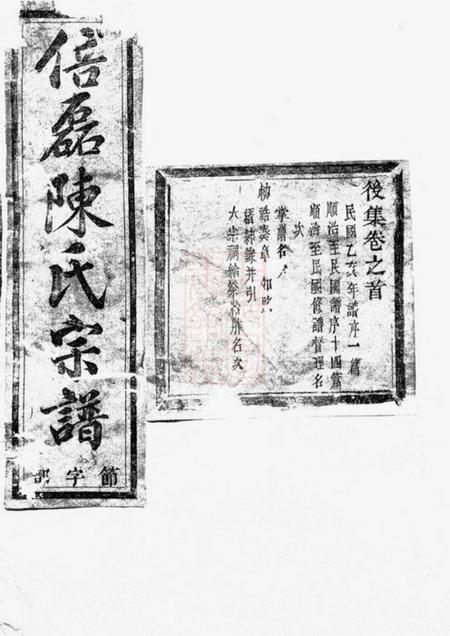 倍磊陳氏宗譜
節字部
後集卷之首
民國乙亥年譜序一篇
順治至民國譜序十四篇
順治至民國修譜督理名
次
掌譜名
誥奏章
并引
大宗祠給祭膰胙名次